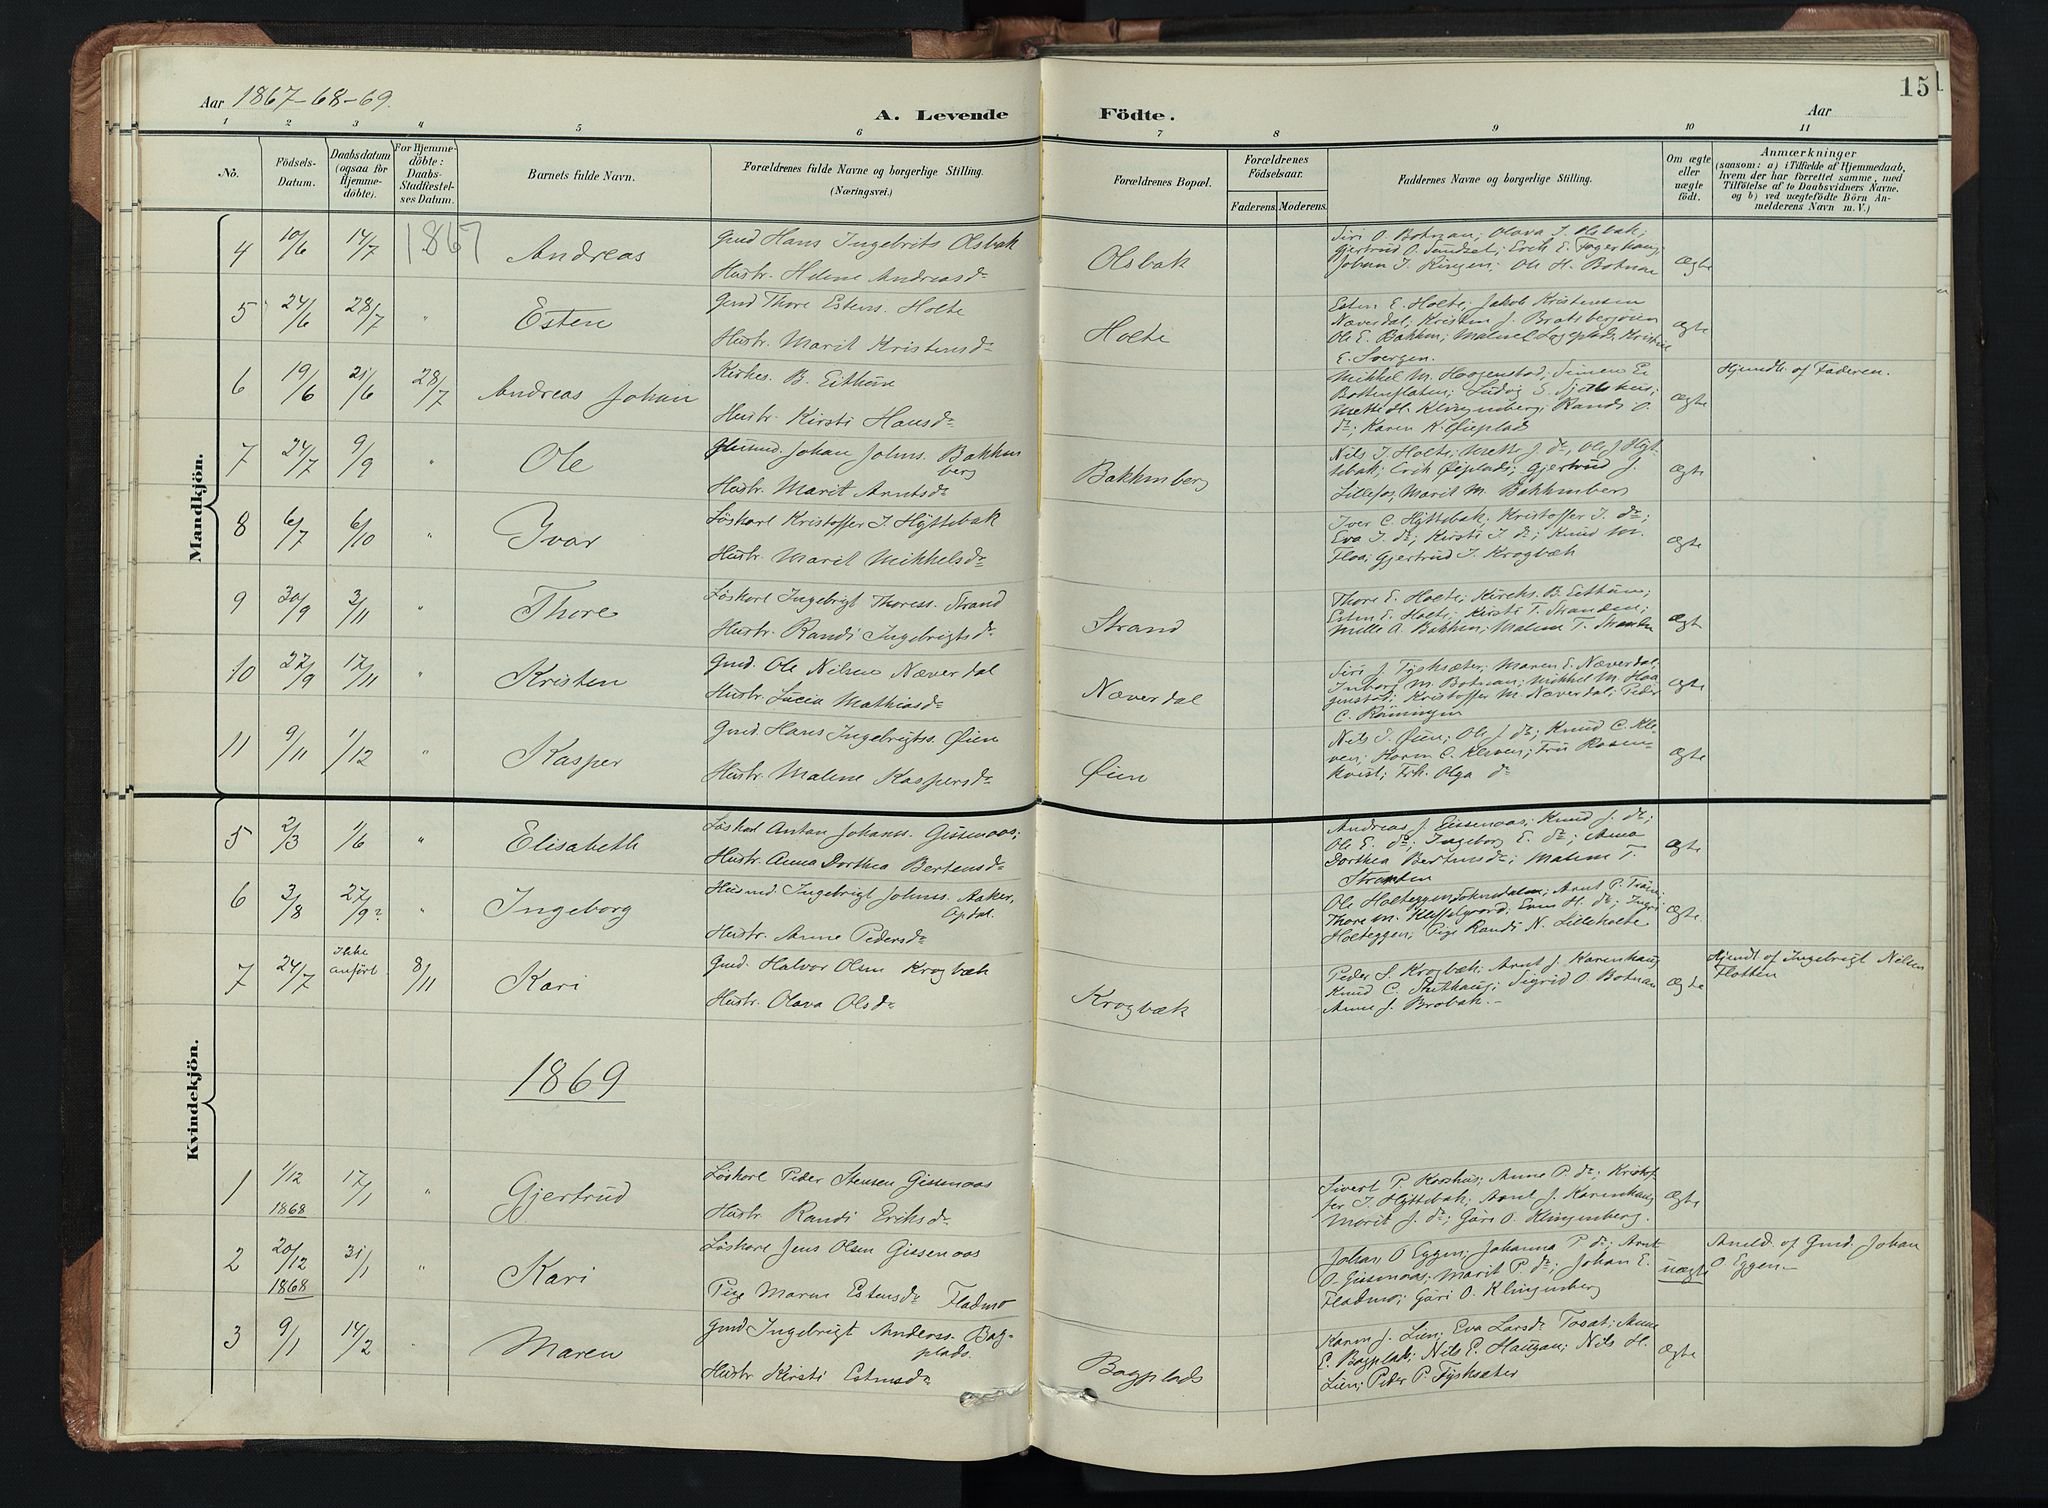 Aar 1867-68-69.
A. Levende Födte.
Aar
15
1 2 3 4 5 6 7 8 9 10 11
No.
Födsels-Datum.
Daabsdatum (ogsaa for Hjemme-döbte).
For Hjemme-döbte: Daabs-Stadfæstel-ses Datum.
Barnets fulde Navn.
Forældrenes fulde Navne og borgerlige Stilling. (Næringsvei.)
Forældrenes Bopæl.
Forældrenes Födselsaar.
Faderens. Moderens.
Faddernes Navne og borgerlige Stilling.
Om ægte eller uægte födt.
Anmærkninger
(saasom: a) i Tilfælde af Hjemmedaab,
hvem der har forrettet samme, med
Tilföielse af to Daabsvidners Navne.
og b) ved uægtefödte Börn An-
melderens Navn m. V.)
Mandkjön.
4 10/6 14/7 1867 Andreas
Gmd Hans Ingebrits Olsbak
Hustr. Helene Andreasdr
Olsbak
Siri O. Botnan; Olava J. Olsbak;
Gjertrud O. Sundset; Erik E. Fagerhaug;
Johan J. Ringen; Ole H. Botnan
Ægte
5 24/6 28/7 " Esten
Gmd Thore Estens. Holte
Hustr. Marit Kristensdr
Holte
Esten E. Holte; Jakob Kristensen
Næverdal; Kristen J. Bratsbergören
Ole E. Bakken;
E. Svergen.
Ægte
6 19/6 21/6 28/7 Andreas Johan
Kirkes. B. Eithun
Hustr. Kirsti Hansdr
Mikkel M. Haagenstad; Simen E.
Bottenflaten; Ludvig S.
Mette H. Klingenberg; Randi O.
dr; Karen K. Øieplad
Ægte
Hjemdt. af Faderen.
7 24/7 9/9 " Ole
Husmd. Johan Johns. Bakken
berg
Hustr. Marit Arntsdr
Bakkenberg
Nils J. Holte; Mette J. dr; Ole J. Hyt-
tebak; Erik Øieplads; Gjertrud J.
Lillefos; Marit M. Bakkenberg
Ægte
8 6/7 6/10 " Ivar
Löskarl Kristoffer I. Hyttebak
Hustr. Marit Mikkelsdr
Iver C. Hyttebak; Kristoffer I. dr;
Eva I. dr; Kirsti I. dr; Knud M.
Floa; Gjertrud I. Krogbæk
Ægte
9 30/9 3/11 " Thore
Löskarl Ingebrigt Thoress. Strand
Hustr. Randi Ingebrigtsdr
Strand
Thore E. Holte; Kirkes. B. Eithun;
Esten E. Holte; Kirsti T. Stranden;
Mille A. Bakken; Malene T. Stranden
Ægte
10 27/9 17/11 " Kristen
Gmd. Ole Nilsen Næverdal
Hustr. Lucia Mathiasdr
Næverdal
Siri J. Tysksæter; Maren E. Næverdal;
Inborg M. Botnan; Mikkel M. Haa
genstad; Kristoffer M. Næverdal; Peder
C. Röningen
Ægte
11 9/11 1/12 " Kasper
Gmd. Hans Ingebrigtss. Øien
Hustr. Malene Kaspersdr
Øien
Nils I. Øien; Ole J. dr; Knud C. Kle-
ven; Karen C. Kleven; Fru Rosen-
kvist; Frk. Olga dr
Ægte
Kvindekjön.
5 2/3 1/6 " Elisabeth
Löskarl Anton Johans. Gissenaas;
Hustr. Anna Dorthea Bertensdr
Andreas J. Gissenaas; Knud J. dr;
Ole E. dr; Ingeborg E. dr; Anna
Dorthea Bertensdr; Malene T.
Stranden
Ægte
6 3/8 27/9? " Ingeborg
Husmd Ingebrigt Johnss. Asken,
Opdal.
Hustr. Anne Pedersdr
Ole Holteggen Soknedalen; Arnt P.
Thore M. Even H. dr;
Holteggen; Pige Randi N. Lilleholte
Ægte.
7 24/7 Ikke anfört 8/11 Kari
Gmd. Halvor Olsen Krogbæk
Hustr. Olava Olsdr
Krogbæk
Peder S. Krogbæk; Arnt J. Karenhaug
Knud C. Sigrid O. Botnan
Anne J. Brobak.-
Ægte
Hjemdt af Ingebrigt Nilsen
Flotten
1869
1 1/12 1868 17/1 " Gjertrud
Löskarl Peder Stensen Gissenaas
Hustr. Randi Eriksdr
Sivert P. Korshus; Anne P. dr; Kristof-
fer I. Hyttebak; Arnt J. Karenhaug
Marit J. dr; Göri O. Klingenberg.
Ægte
2 20/12 1868 31/1 " Kari
Löskarl Jens Olsen Gissenaas
Pige Maren Estensdr Fladmo
Johan O Eggen; Johanna P dr; Arnt
O. Gissenaas; Marit P. dr; Johan E.
Fladmo; Göri O. Klingenberg
uægte
Anmld. af Gmd. Johan
O. Eggen.-
3 9/1 14/2 " Maren
Gmd Ingebrigt Anderss. Bag-
plads.
Hustr Kirsti Estensdr
Bagplads
Karen J. Lien; Eva Larsdr Tosat; Anne
E. Bagplads; Nils E. Haugan; Nils H.
Lien; Peder P. Tysksæter
Ægte